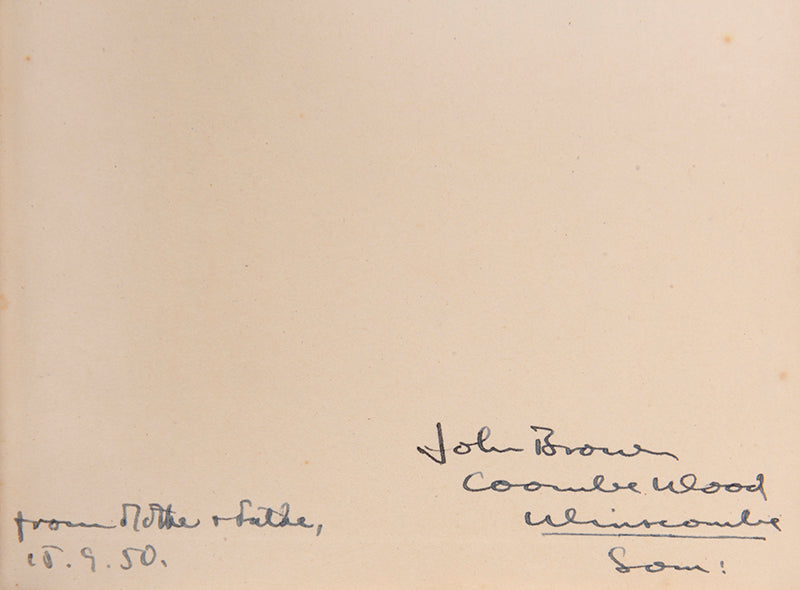 John Brown
Coombe Wood
Winscombe
Som:
from Mother & Father,
15.9.50.